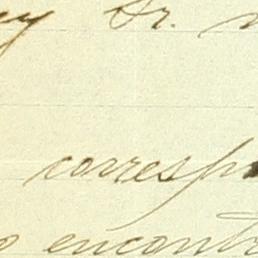 Sr.
corresp
o encont